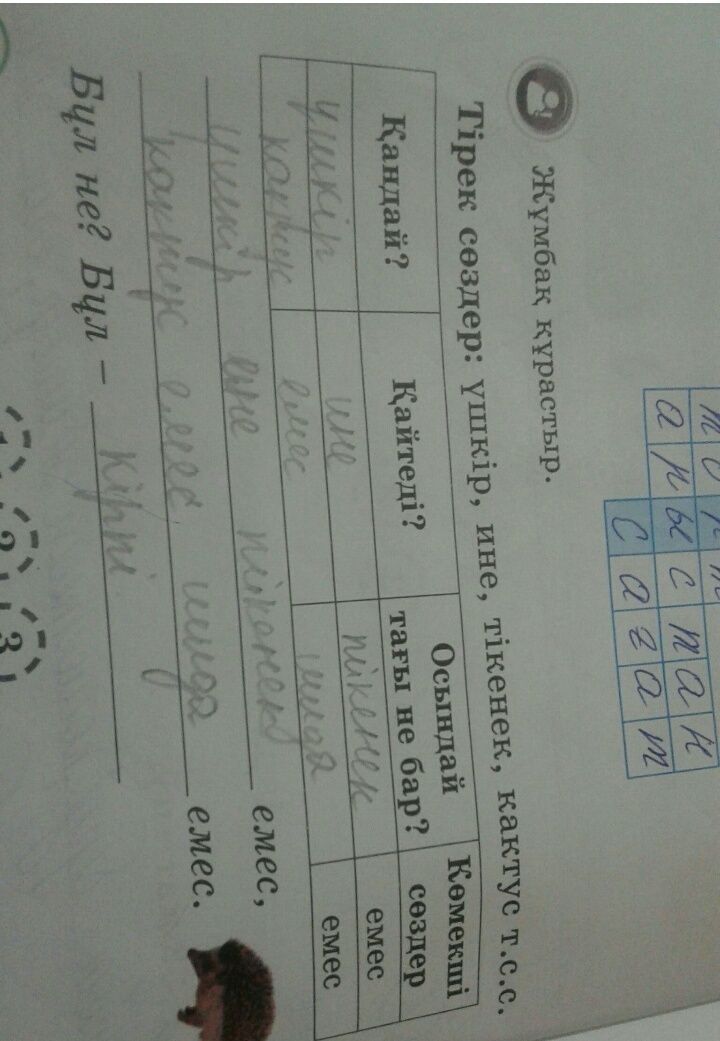 т о р т
а р ы с т а н
с а ғ а т
Жұмбақ құрастыр.
Тірек сөздер: үшкір, ине, тікенек, кактус т.с.с.
Қандай? Қайтеді? Осындай тағы не бар? Көмекші сөздер
үшкір ине тікенек емес
кактус емес шыда емес
үшкір ине тікенек емес,
кактус емес шыда емес.
Бұл не? Бұл – кірпі
1 2 3